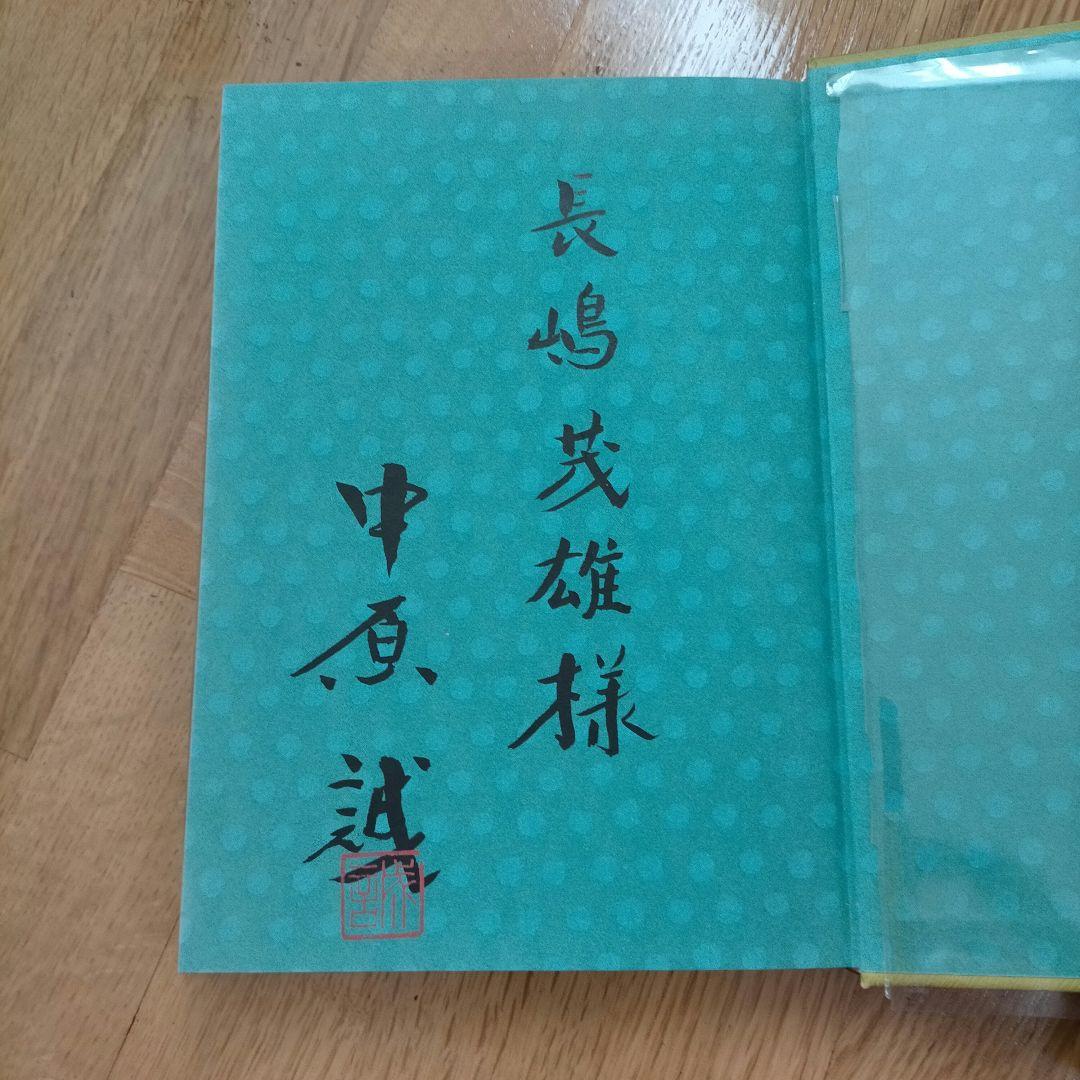 長嶋茂雄様
中原誠